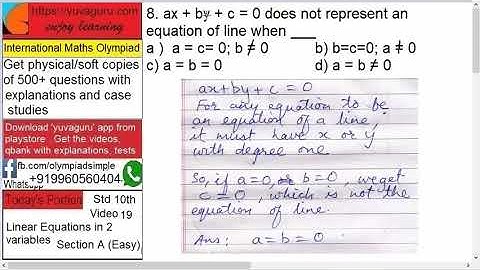 https://yuvaguru.com
enjoy learning
International Maths Olympiad
Get physical/soft copies
of 500+ questions with
explanations and case
studies
Download 'yuvaguru' app from
playstore Get the videos,
qbank with explanations, tests
fb.com/olympiadsimple
Whatsapp
+919960560404
Today's Portion
Std 10th
Video 19
Linear Equations in 2
variables
Section A (Easy)
8. ax + by + c = 0 does not represent an
equation of line when ___
a ) a = c= 0; b ≠ 0 b) b=c=0; a ≠ 0
c) a = b = 0 d) a = b ≠ 0
ax+by+c = 0
For any equation to be
an equation of a line,
it must have x or y
with degree one
So, if a=0, b=0, we get
c=0, which is not the
equation of line.
Ans: a=b=0